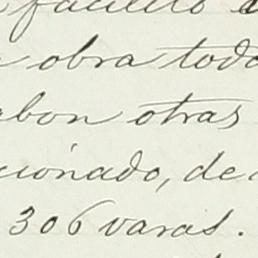 facilitó
obra toda
bon otras
cionado, de
306 varas.